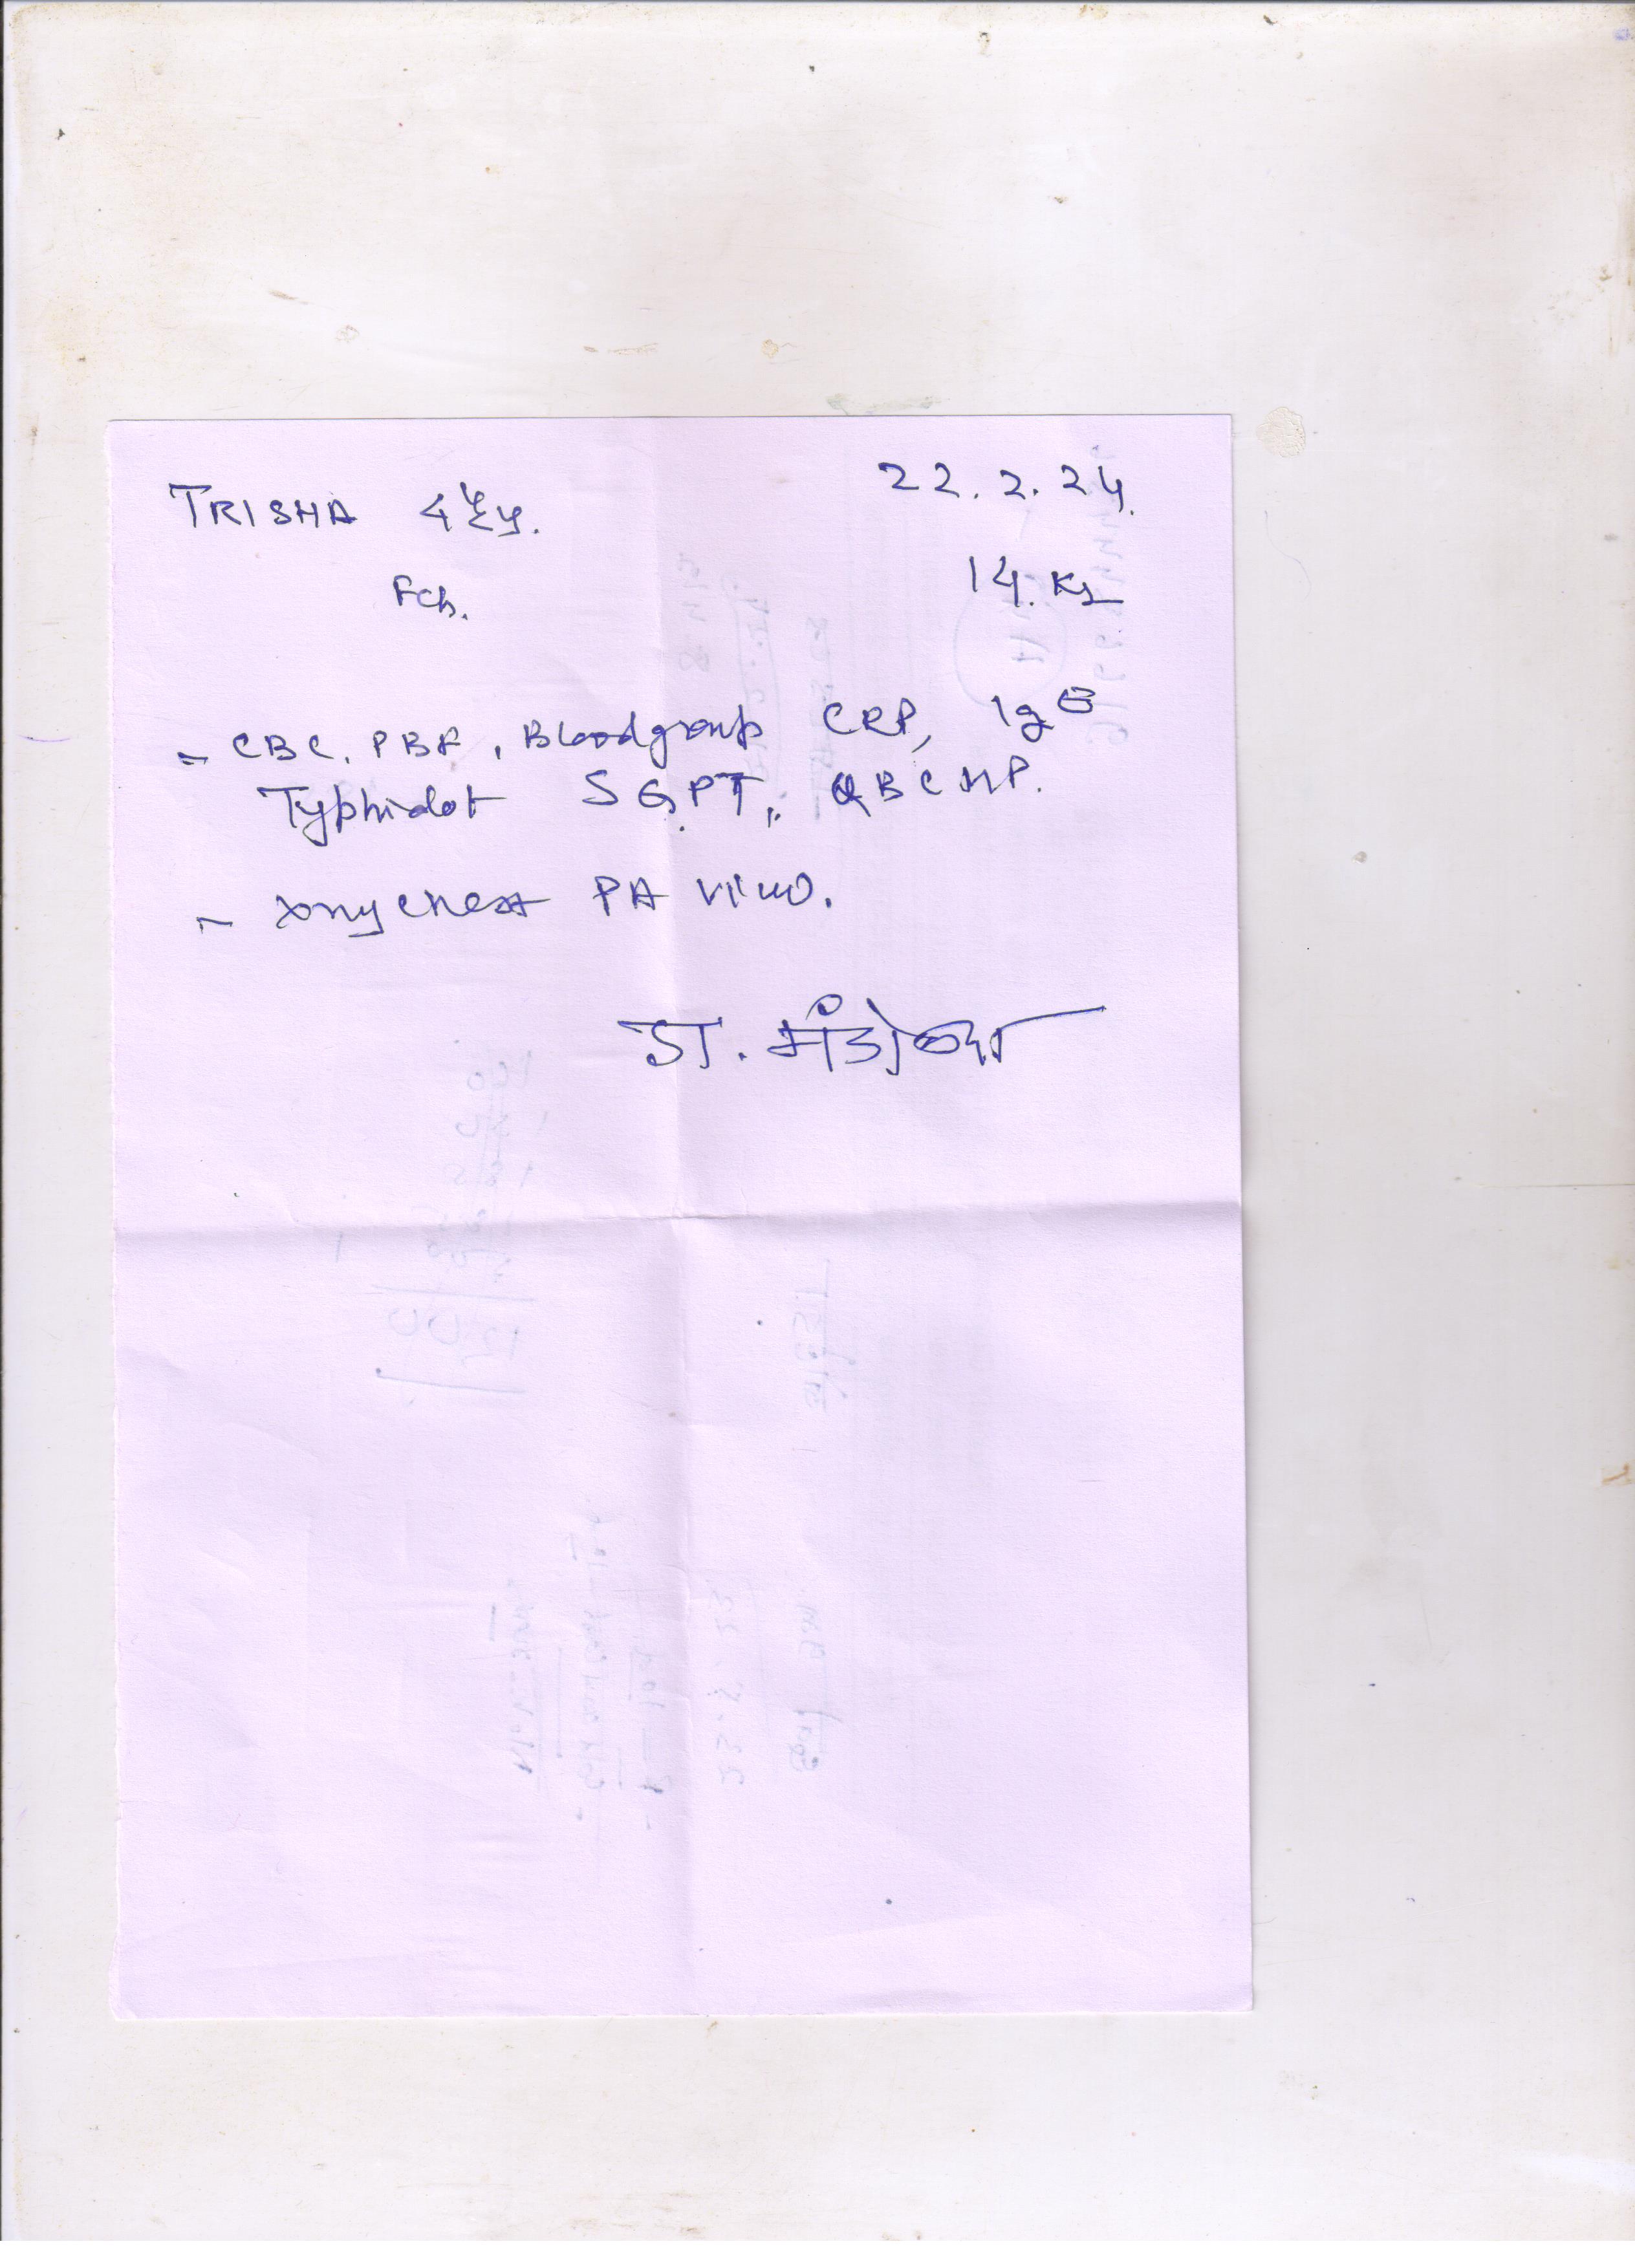 TRISHA 4½y. 22.2.24
Fch. 14. Kg
- CBC, PBF, Bloodgroup CRP, IgE
Typhidot SGPT, QBC MP.
- xray chest PA view.
डा.